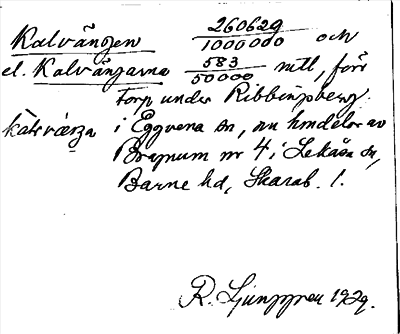 Kalvängen 260629/1000000 och
el. Kalvängarna 583/50000 mtl, förr
Torp under Ribbingsberg
i Eggvena sn, nu hmdelar av
Bragnum nr 4 i Lekåsa sn,
Barne hd, Skarab. l.
R. Ljunggren 1929.